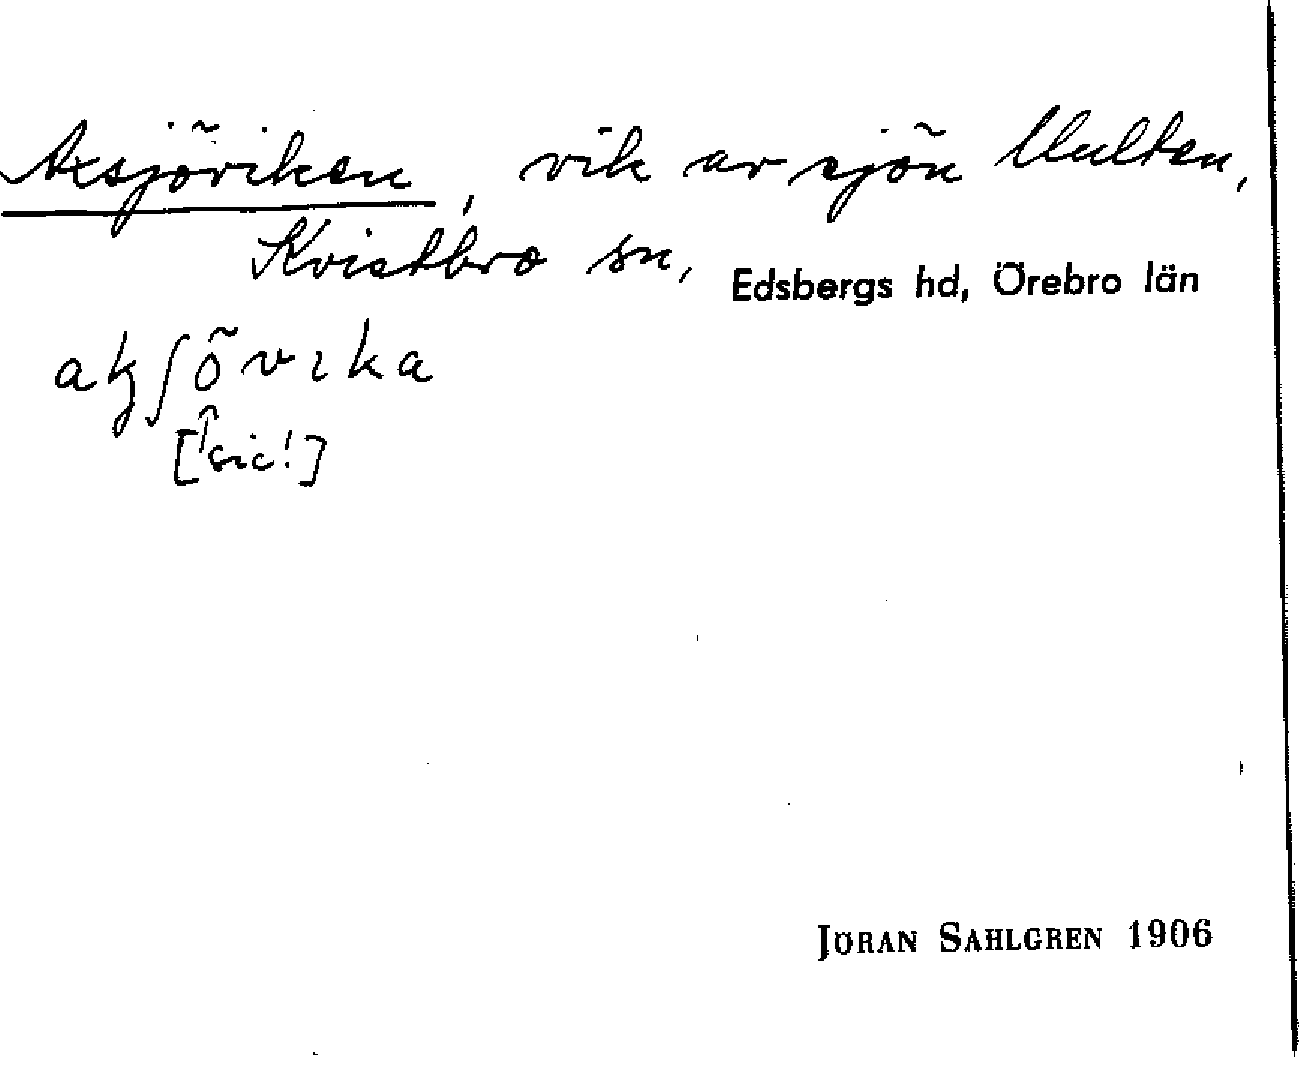 Axsjöviken, vik av sjön Multen,
Kvistbro sn, Edsbergs hd, Örebro län
akʃövıka
[↑sic!]
JÖRAN SAHLGREN 1906